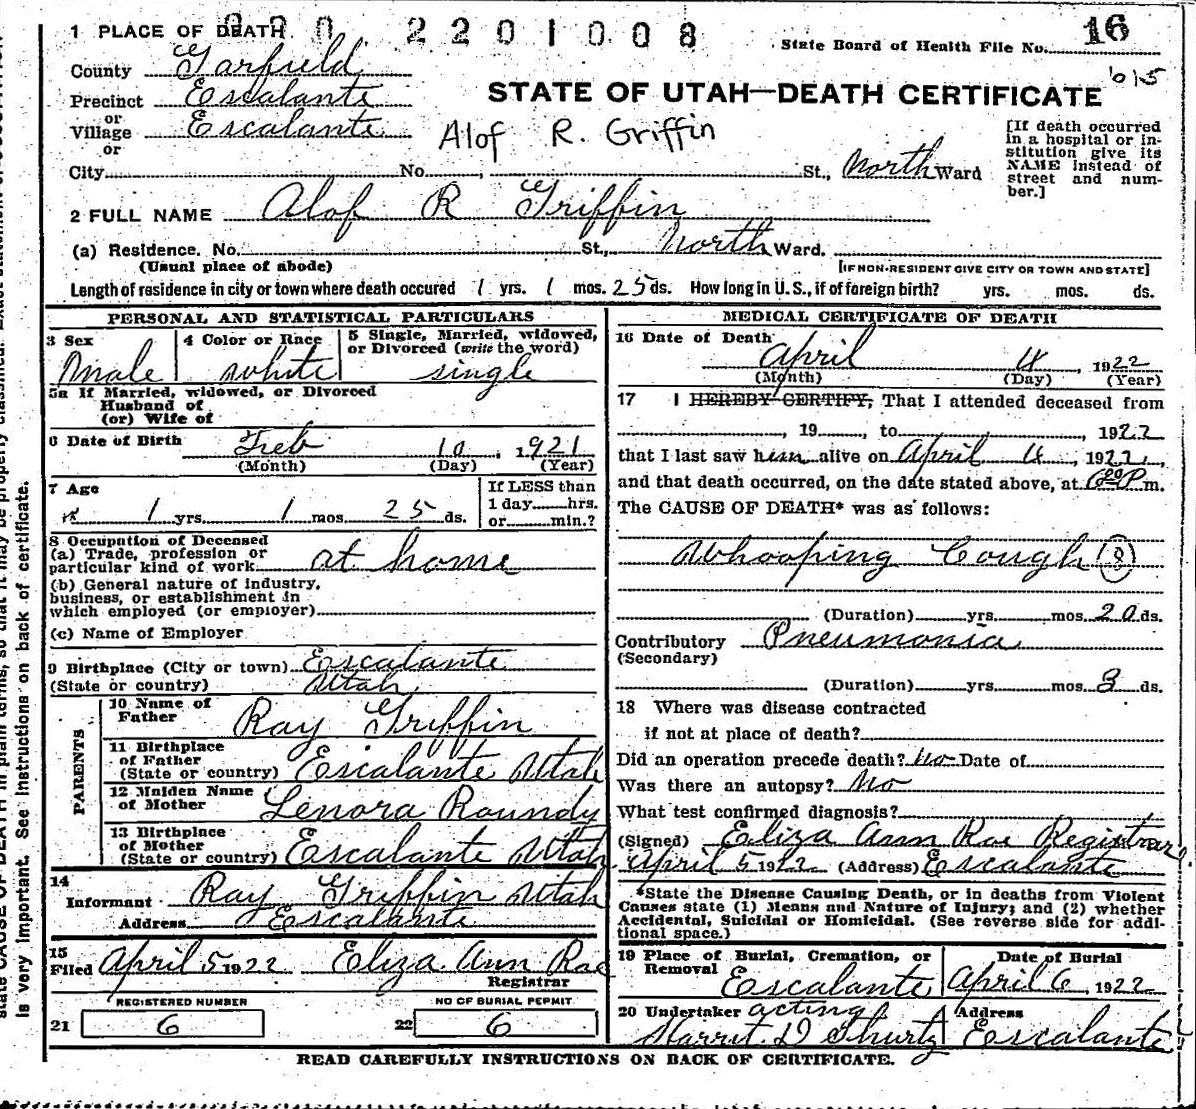 2201008
16
1 PLACE OF DEATH
State Board of Health File No.
County Garfield
Precinct Escalante
or
Village Escalante
or
STATE OF UTAH—DEATH CERTIFICATE
Alof R. Griffin
[If death occurred
in a hospital or in-
stitution give its
NAME instead of
street and num-
ber.]
City No. St., North Ward
2 FULL NAME Alof R Griffin
(a) Residence. No. St., North Ward.
(Usual place of abode) [IF NON-RESIDENT GIVE CITY OR TOWN AND STATE]
Length of residence in city or town where death occured 1 yrs. 1 mos. 25 ds. How long in U. S., if of foreign birth? yrs. mos. ds.
PERSONAL AND STATISTICAL PARTICULARS
3 Sex
Male
4 Color or Race
white
5 Single, Married, widowed,
or Divorced (write the word)
single
5a If Married, widowed, or Divorced
Husband of
(or) Wife of
6 Date of Birth Feb 10, 1921
(Month) (Day) (Year)
7 Age
1 yrs. 1 mos. 25 ds.
If LESS than
1 day hrs.
or min.?
8 Occupation of Deceased
(a) Trade, profession or
particular kind of work at home
(b) General nature of industry,
business, or establishment in
which employed (or employer)
(c) Name of Employer
9 Birthplace (City or town) Escalante
(State or country) Utah
PARENTS
10 Name of
Father Ray Griffin
11 Birthplace
of Father
(State or country) Escalante Utah
12 Maiden Name
of Mother Lenora Roundy
13 Birthplace
of Mother
(State or country) Escalante Utah
14
Informant Ray Griffin Utah
Address Escalante
15
Filed April 5 1922 Eliza Ann Rae
Registrar
REGISTERED NUMBER
21 6
NO OF BURIAL PERMIT
22 6
MEDICAL CERTIFICATE OF DEATH
16 Date of Death
April 4, 1922
(Month) (Day) (Year)
17 I HEREBY CERTIFY, That I attended deceased from
, 19 , to , 1922
that I last saw him alive on April 4, 1922,
and that death occurred, on the date stated above, at P m.
The CAUSE OF DEATH* was as follows:
Whooping Cough 8
(Duration) yrs. mos. 20 ds.
Contributory Pneumonia
(Secondary)
(Duration) yrs. mos. 3 ds.
18 Where was disease contracted
if not at place of death?
Did an operation precede death? No Date of
Was there an autopsy? No
What test confirmed diagnosis?
(Signed) Eliza Ann Rae Registrar
April 5 1922 (Address) Escalante
*State the Disease Causing Death, or in deaths from Violent
Causes state (1) Means and Nature of Injury; and (2) whether
Accidental, Suicidal or Homicidal. (See reverse side for addi-
tional space.)
19 Place of Burial, Cremation, or
Removal
Escalante
Date of Burial
April 6, 1922
20 Undertaker acting
D Shurtz
Address
Escalante
READ CAREFULLY INSTRUCTIONS ON BACK OF CERTIFICATE.
is very important. See instructions on back of certificate.